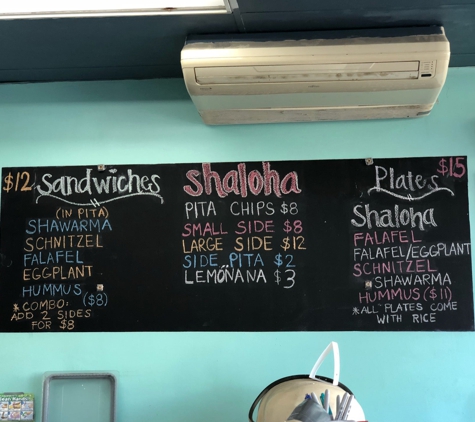 $12 Sandwiches
(IN PITA)
SHAWARMA
SCHNITZEL
FALAFEL
EGGPLANT
HUMMUS ($8)
*COMBO:
ADD 2 SIDES
FOR $8
shaloha
PITA CHIPS $8
SMALL SIDE $8
LARGE SIDE $12
SIDE PITA $2
LEMONANA $3
Plates $15
Shaloha
FALAFEL
FALAFEL/EGGPLANT
SCHNITZEL
SHAWARMA
HUMMUS ($11)
*ALL PLATES COME
WITH RICE